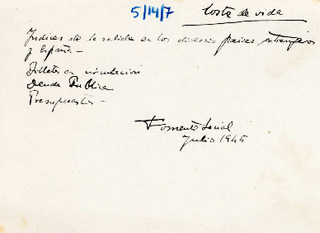 5/14/7
Coste de vida
Indices de la subida en los diversos paises extranjeros
y España.—
Billetes en circulación
Deuda Publica
Presupuestos —
Fomento Social
Julio 1945